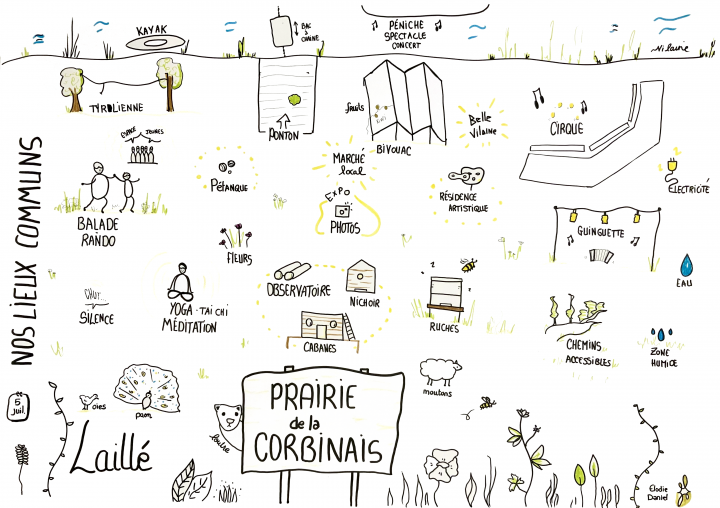 KAYAK
BAC
à
CHAÎNE
PÉNICHE
SPECTACLE
CONCERT
Vilaine
TYROLIENNE
PONTON
fruits
BIVOUAC
Belle
Vilaine
CIRQUE
ESPACE JEUNES
PÉTANQUE
MARCHÉ
local
EXPO
PHOTOS
RÉSIDENCE
ARTISTIQUE
ÉLECTRICITÉ
NOS LIEUX COMMUNS
BALADE
RANDO
FLEURS
GUINGUETTE
EAU
CHUT...
SILENCE
YOGA - TAI CHI
MÉDITATION
OBSERVATOIRE
NICHOIR
CABANES
RUCHES
CHEMINS
ACCESSIBLES
ZONE
HUMIDE
5
juil.
oies
paon
Laillé
loutre
PRAIRIE
de la
CORBINAIS
moutons
Élodie
Daniel